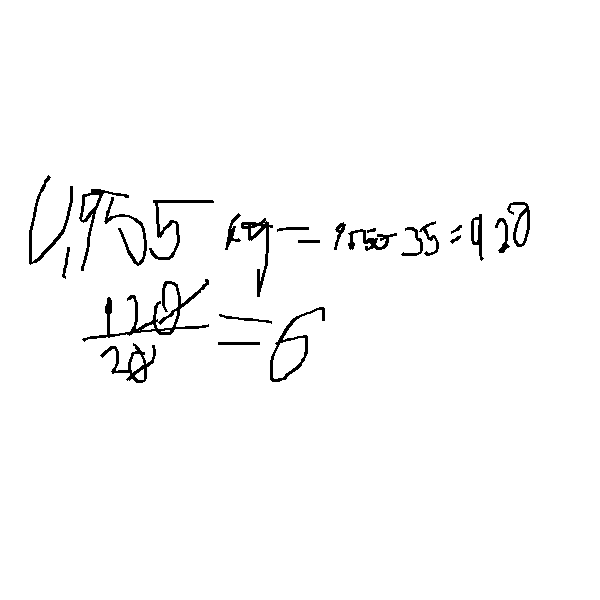 0,955 кg = 955 - 35 = 920
120/20 = 6